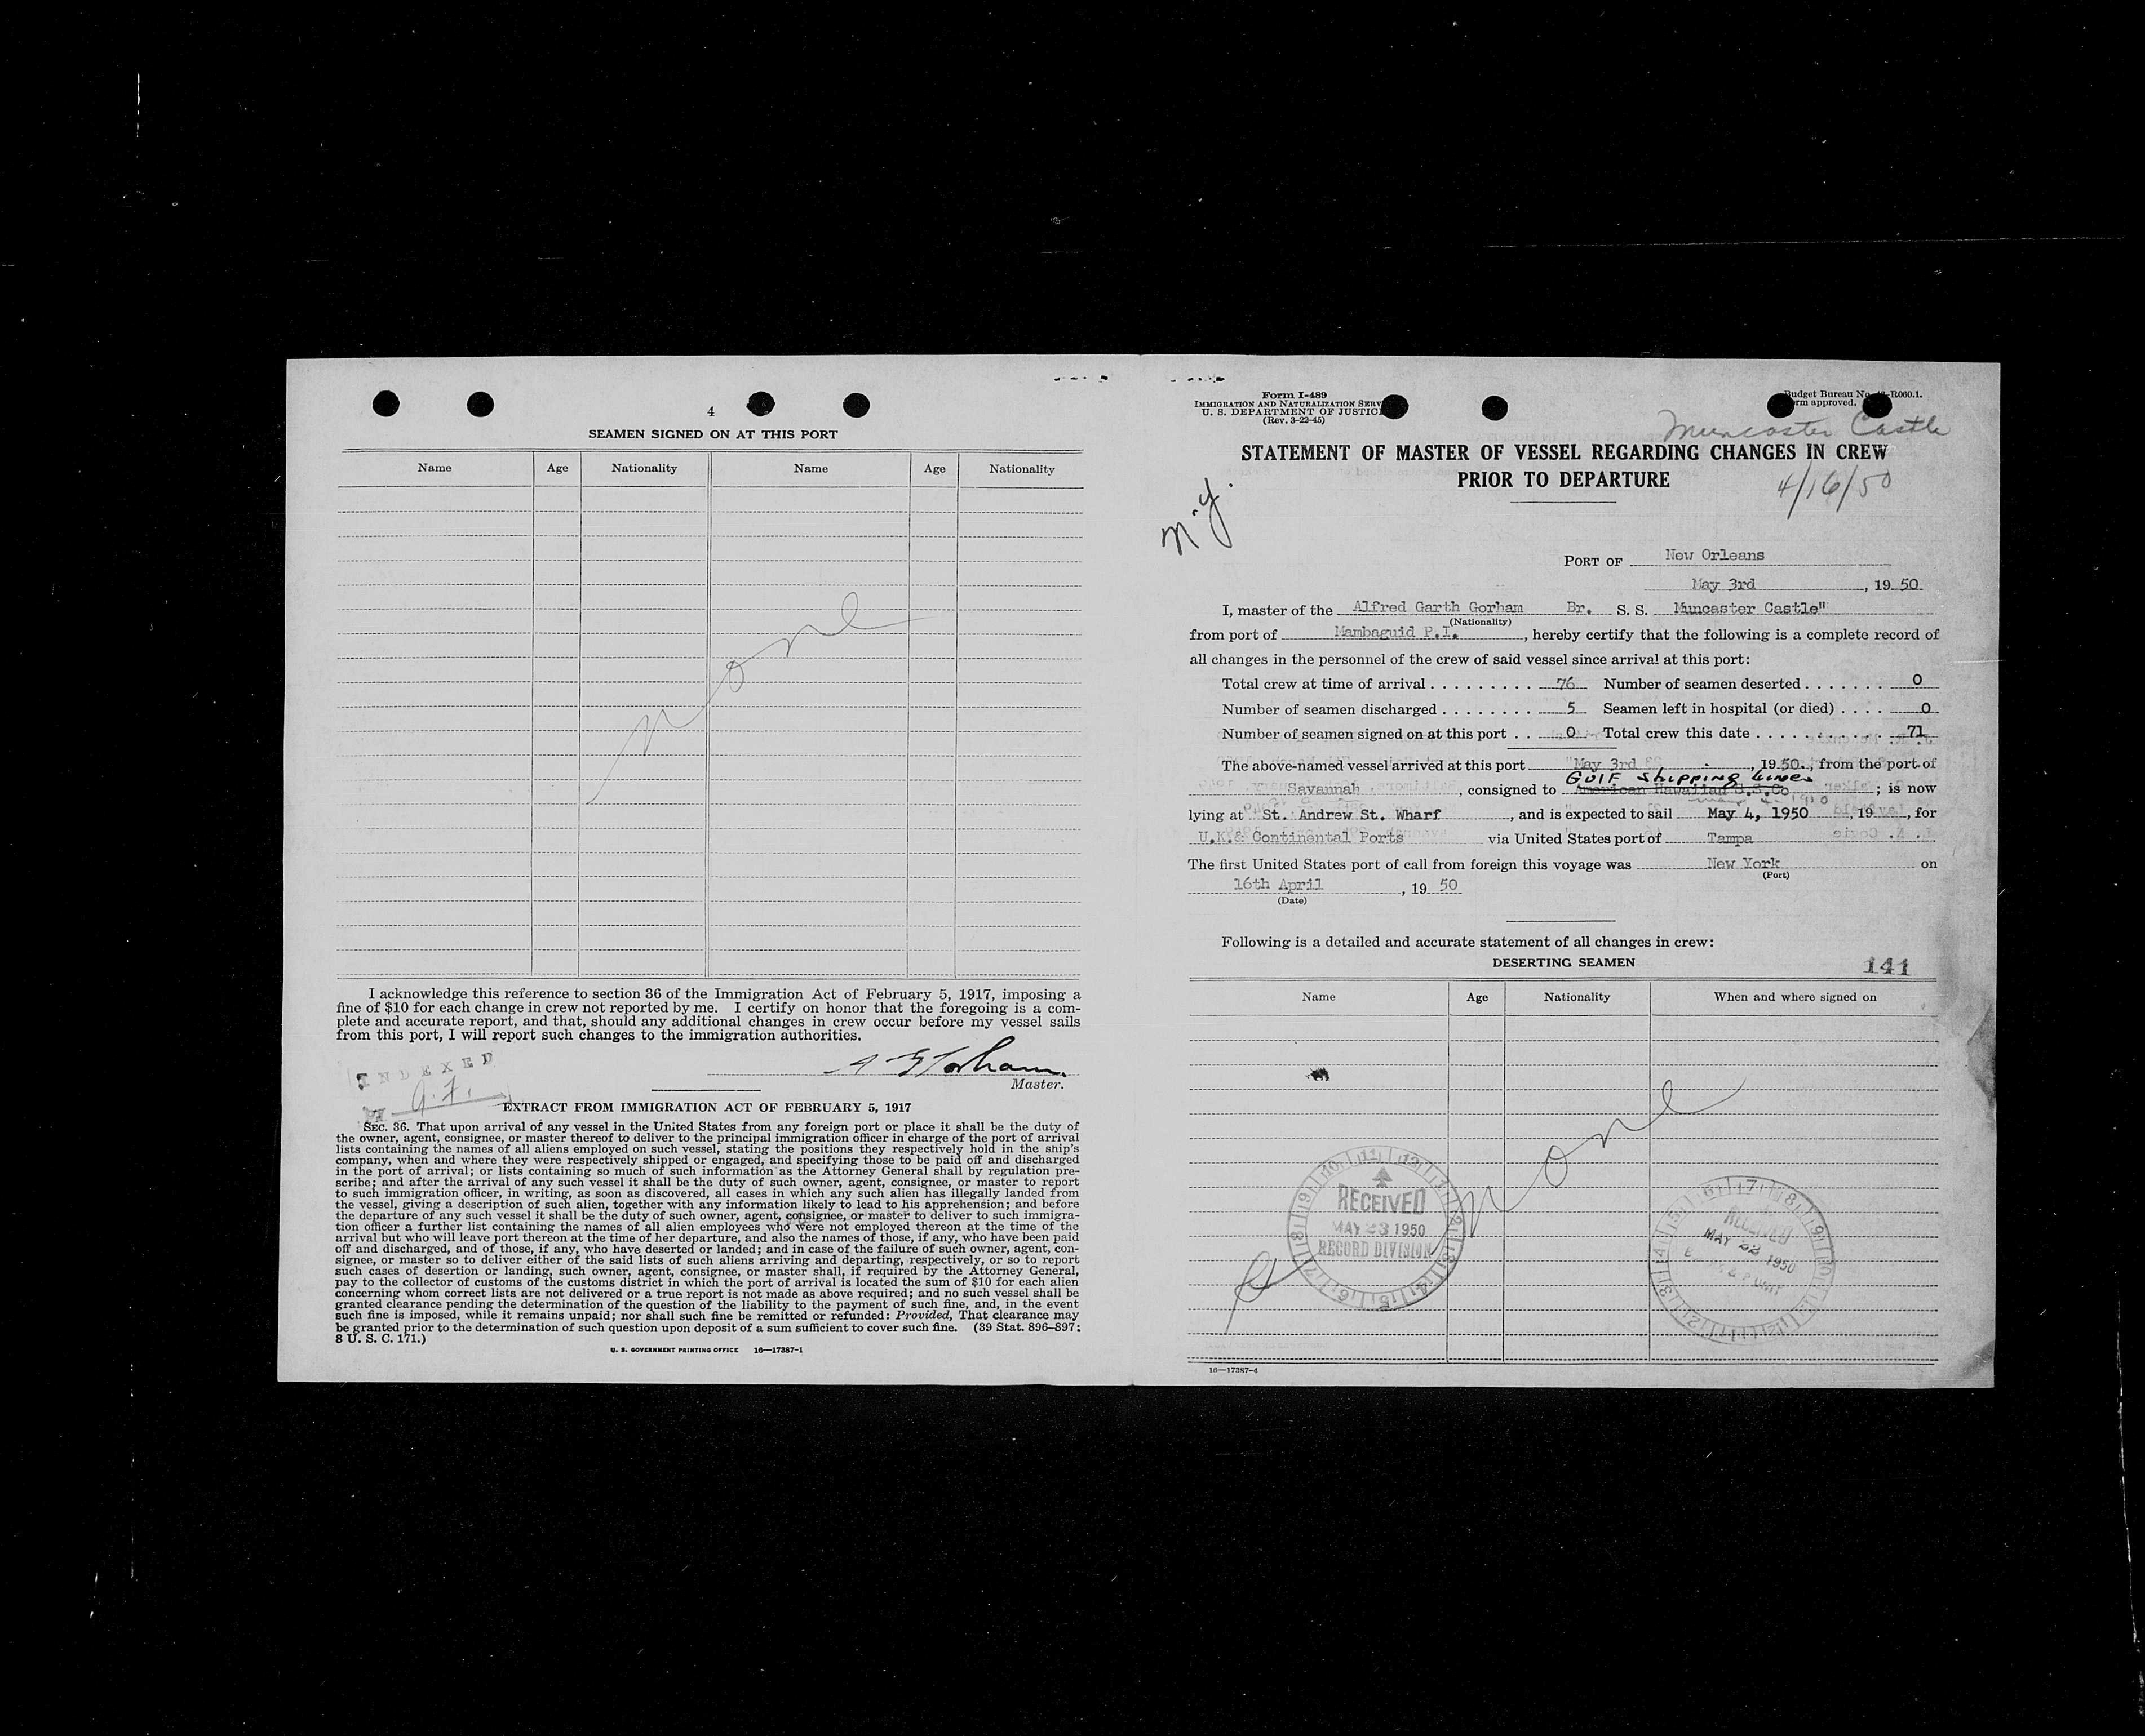 4
SEAMEN SIGNED ON AT THIS PORT
Name Age Nationality Name Age Nationality
None
I acknowledge this reference to section 36 of the Immigration Act of February 5, 1917, imposing a
fine of $10 for each change in crew not reported by me. I certify on honor that the foregoing is a com-
plete and accurate report, and that, should any additional changes in crew occur before my vessel sails
from this port, I will report such changes to the immigration authorities.
Master.
INDEXED
EXTRACT FROM IMMIGRATION ACT OF FEBRUARY 5, 1917
SEC. 36. That upon arrival of any vessel in the United States from any foreign port or place it shall be the duty of
the owner, agent, consignee, or master thereof to deliver to the principal immigration officer in charge of the port of arrival
lists containing the names of all aliens employed on such vessel, stating the positions they respectively hold in the ship's
company, when and where they were respectively shipped or engaged, and specifying those to be paid off and discharged
in the port of arrival; or lists containing so much of such information as the Attorney General shall by regulation pre-
scribe; and after the arrival of any such vessel it shall be the duty of such owner, agent, consignee, or master to report
to such immigration officer, in writing, as soon as discovered, all cases in which any such alien has illegally landed from
the vessel, giving a description of such alien, together with any information likely to lead to his apprehension; and before
the departure of any such vessel it shall be the duty of such owner, agent, consignee, or master to deliver to such immigra-
tion officer a further list containing the names of all alien employees who were not employed thereon at the time of the
arrival but who will leave port thereon at the time of her departure, and also the names of those, if any, who have been paid
off and discharged, and of those, if any, who have deserted or landed; and in case of the failure of such owner, agent, con-
signee, or master so to deliver either of the said lists of such aliens arriving and departing, respectively, or so to report
such cases of desertion or landing, such owner, agent, consignee, or master shall, if required by the Attorney General,
pay to the collector of customs of the customs district in which the port of arrival is located the sum of $10 for each alien
concerning whom correct lists are not delivered or a true report is not made as above required; and no such vessel shall be
granted clearance pending the determination of the question of the liability to the payment of such fine, and, in the event
such fine is imposed, while it remains unpaid; nor shall such fine be remitted or refunded: Provided, That clearance may
be granted prior to the determination of such question upon deposit of a sum sufficient to cover such fine. (39 Stat. 896–897;
8 U. S. C. 171.)
U. S. GOVERNMENT PRINTING OFFICE 16—17387-1
Form I-489
IMMIGRATION AND NATURALIZATION SERV
U. S. DEPARTMENT OF JUSTIC
(Rev. 3-22-45)
Budget Bureau No. R060.1.
rm approved.
Muncaster Castle
STATEMENT OF MASTER OF VESSEL REGARDING CHANGES IN CREW
PRIOR TO DEPARTURE
4/16/50
N.Y.
PORT OF New Orleans
May 3rd, 19 50
I, master of the Alfred Garth Gorham Br. S. S. Muncaster Castle"
(Nationality)
from port of Mambaguid P.I., hereby certify that the following is a complete record of
all changes in the personnel of the crew of said vessel since arrival at this port:
Total crew at time of arrival 76 Number of seamen deserted 0
Number of seamen discharged 5 Seamen left in hospital (or died) 0
Number of seamen signed on at this port 0 Total crew this date 71
The above-named vessel arrived at this port May 3rd, 19 50, from the port of
GULF Shipping Lines
Savannah, consigned to American Hawaiian S.S.Co; is now
lying at St. Andrew St. Wharf, and is expected to sail May 4, 1950, 19, for
U.K.& Continental Ports via United States port of Tampa
The first United States port of call from foreign this voyage was New York on
(Port)
16th April, 19 50
(Date)
Following is a detailed and accurate statement of all changes in crew:
DESERTING SEAMEN 141
Name Age Nationality When and where signed on
None
RECEIVED
MAY 23 1950
RECORD DIVISION
RECEIVED
MAY 22 1950
16—17387-4